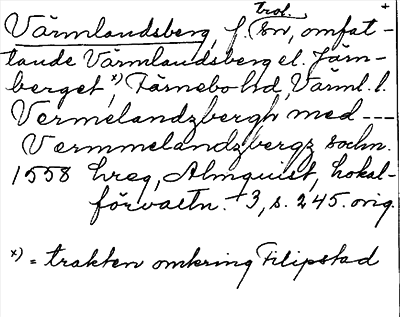 trol. +
Värmlandsberg, f. sn, omfat-
tande Värmlandsberg el. Järn-
berget x), Färnebo hd, Värml. l.
Vermelandzbergh med ---
Vermmelandzbergz sochn.
1558 breg, Almquist, Lokal-
förvaltn. 3, s. 245. orig.
x) = trakten omkring Filipstad